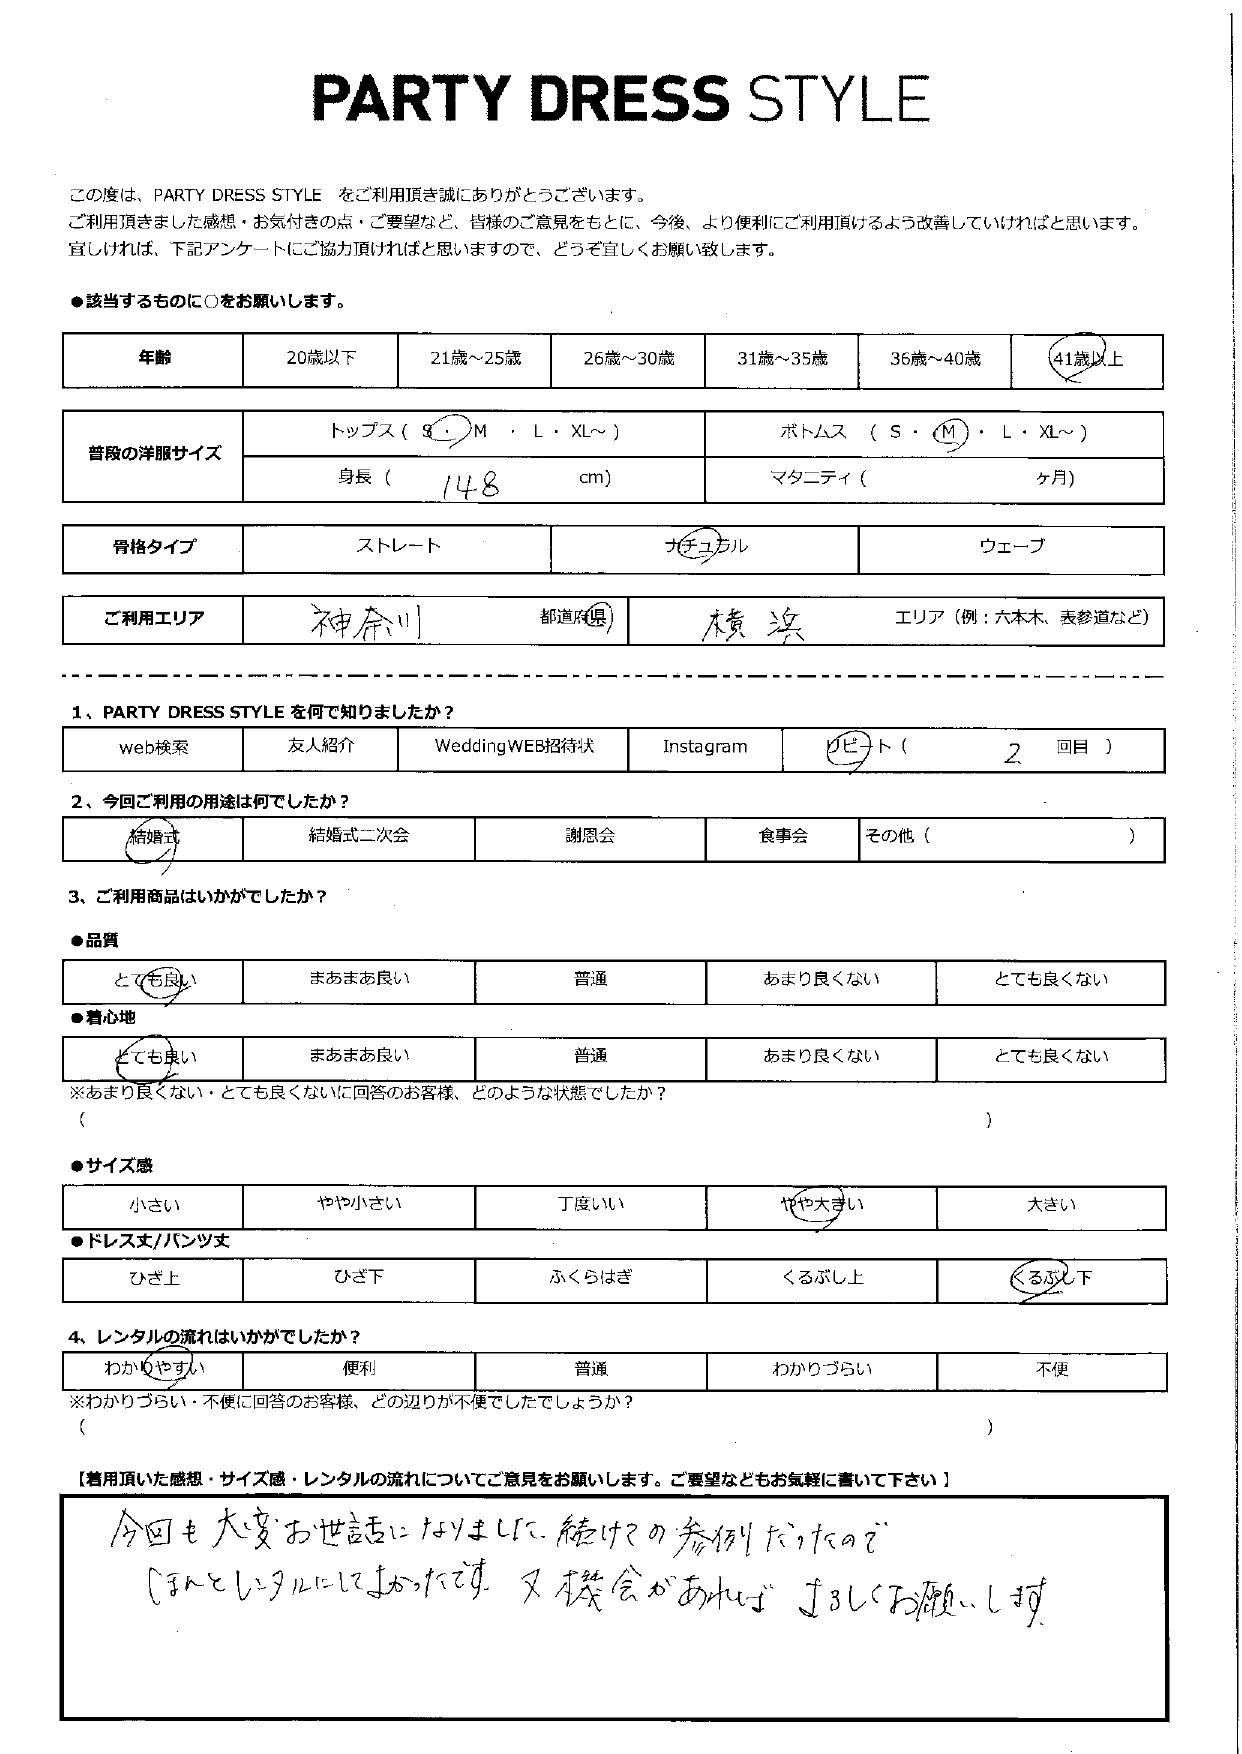 PARTY DRESS STYLE
この度は、PARTY DRESS STYLE をご利用頂き誠にありがとうございます。
ご利用頂きました感想・お気付きの点・ご要望など、皆様のご意見をもとに、今後、より便利にご利用頂けるよう改善していければと思います。
宜しければ、下記アンケートにご協力頂ければと思いますので、どうぞ宜しくお願い致します。
●該当するものに○をお願いします。
年齢 20歳以下 21歳～25歳 26歳～30歳 31歳～35歳 36歳～40歳 41歳以上
普段の洋服サイズ
トップス ( S ・ M ・ L ・ XL～ ) ボトムス ( S ・ M ・ L ・ XL～ )
身長 ( 148 cm) マタニティ ( ヶ月)
骨格タイプ ストレート ナチュラル ウェーブ
ご利用エリア 神奈川 都道府県 横浜 エリア（例：六本木、表参道など）
1、PARTY DRESS STYLE を何で知りましたか？
web検索 友人紹介 WeddingWEB招待状 Instagram リピート ( 2 回目 )
2、今回ご利用の用途は何でしたか？
結婚式 結婚式二次会 謝恩会 食事会 その他 ( )
3、ご利用商品はいかがでしたか？
●品質
とても良い まあまあ良い 普通 あまり良くない とても良くない
●着心地
とても良い まあまあ良い 普通 あまり良くない とても良くない
※あまり良くない・とても良くないに回答のお客様、どのような状態でしたか？
( )
●サイズ感
小さい やや小さい 丁度いい やや大きい 大きい
●ドレス丈/パンツ丈
ひざ上 ひざ下 ふくらはぎ くるぶし上 くるぶし下
4、レンタルの流れはいかがでしたか？
わかりやすい 便利 普通 わかりづらい 不便
※わかりづらい・不便に回答のお客様、どの辺りが不便でしたでしょうか？
( )
【着用頂いた感想・サイズ感・レンタルの流れについてご意見をお願いします。ご要望などもお気軽に書いて下さい 】
今回も大変お世話になりました、続けての参列だったので
ほんとレンタルにしてよかったです。又機会があれば よろしくお願いします